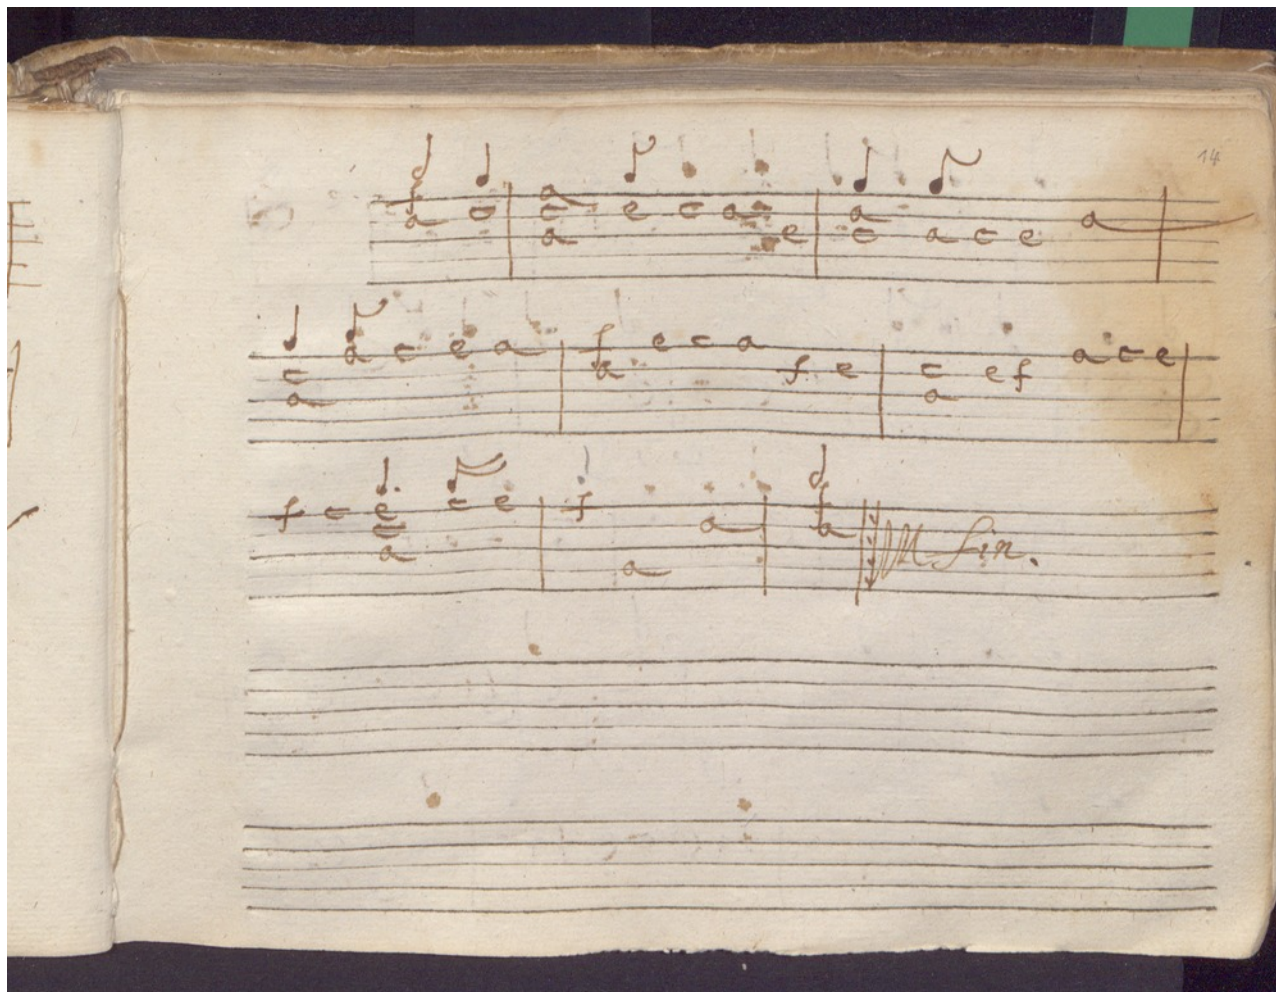 14
f a c a c a e c a e a c a c e a
c a a c e a f a e c a f e c a e f a c e
f c e c a c e f a a f a Fin.